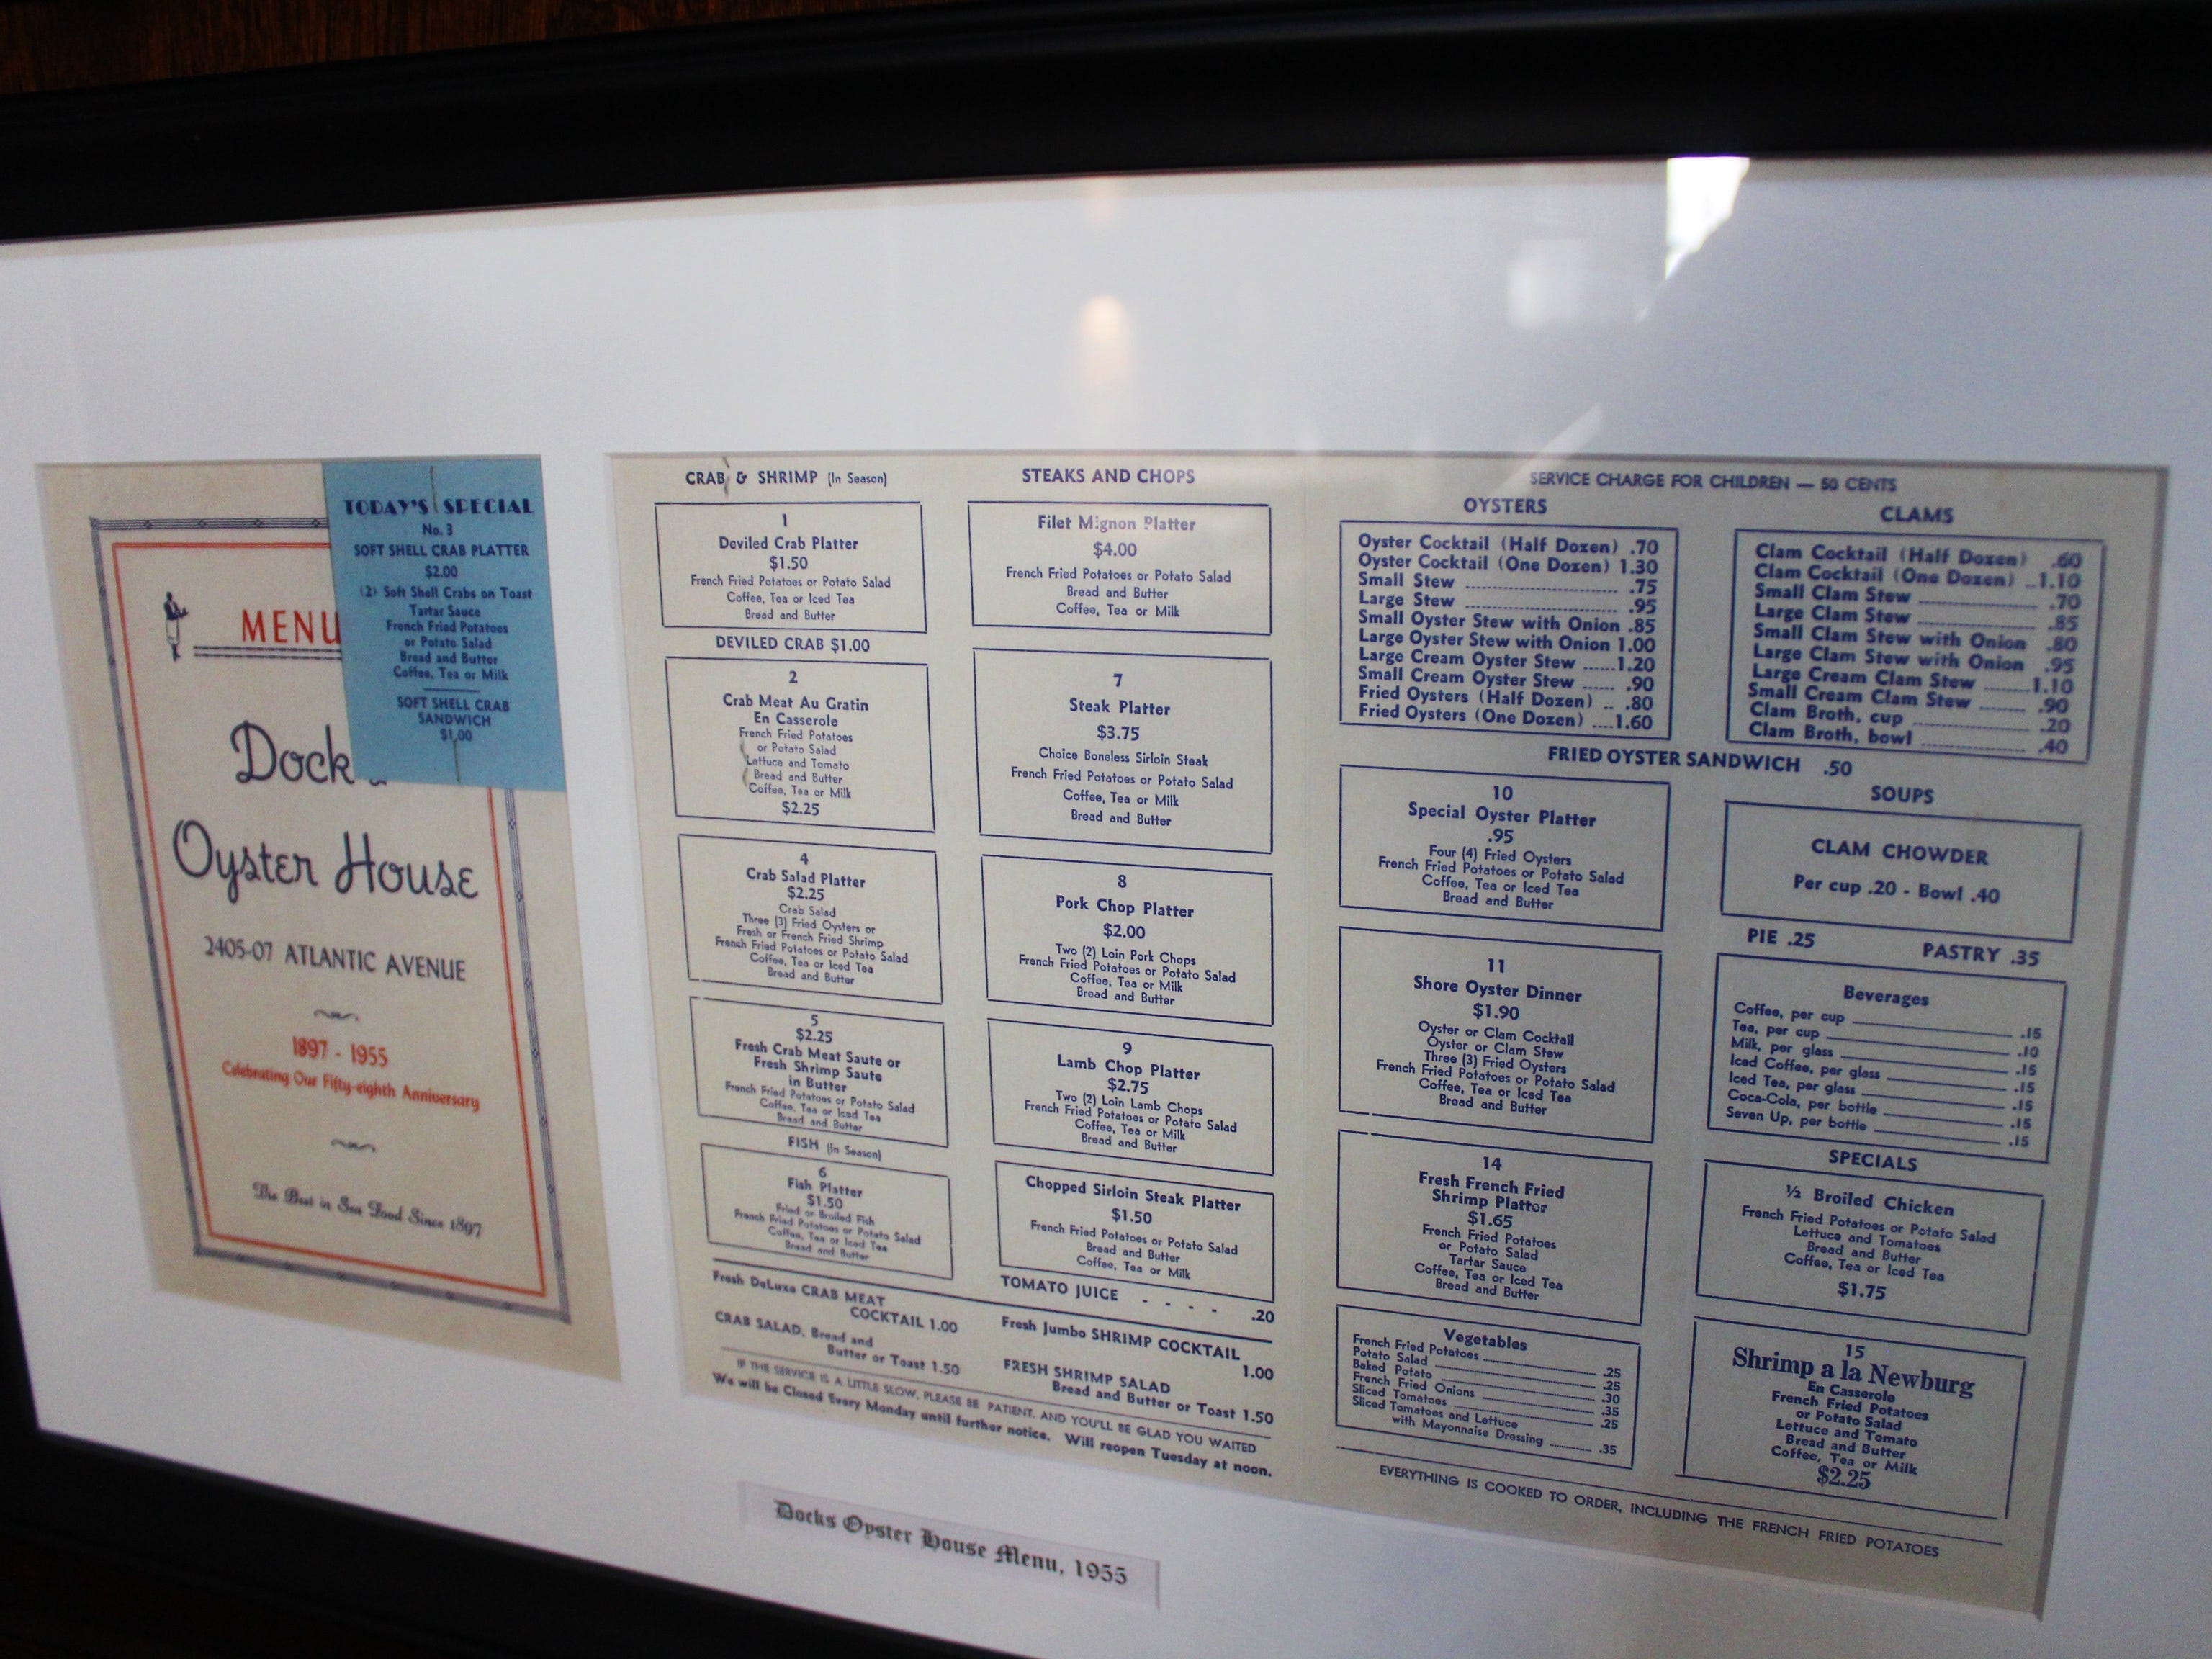 MENU
Dock
Oyster House
2405-07 ATLANTIC AVENUE
1897 - 1955
Celebrating Our Fifty-eighth Anniversary
The Best in Sea Food Since 1897
TODAY'S SPECIAL
No. 3
SOFT SHELL CRAB PLATTER
$2.00
(2) Soft Shell Crabs on Toast
Tartar Sauce
French Fried Potatoes
or Potato Salad
Bread and Butter
Coffee, Tea or Milk
SOFT SHELL CRAB
SANDWICH
$1.00
CRAB & SHRIMP (In Season)
1
Deviled Crab Platter
$1.50
French Fried Potatoes or Potato Salad
Coffee, Tea or Iced Tea
Bread and Butter
DEVILED CRAB $1.00
2
Crab Meat Au Gratin
En Casserole
French Fried Potatoes
or Potato Salad
Lettuce and Tomato
Bread and Butter
Coffee, Tea or Milk
$2.25
4
Crab Salad Platter
$2.25
Crab Salad
Three (3) Fried Oysters or
Fresh or French Fried Shrimp
French Fried Potatoes or Potato Salad
Coffee, Tea or Iced Tea
Bread and Butter
5
$2.25
Fresh Crab Meat Saute or
Fresh Shrimp Saute
in Butter
French Fried Potatoes or Potato Salad
Coffee, Tea or Iced Tea
Bread and Butter
FISH (In Season)
6
Fish Platter
$1.50
Fried or Broiled Fish
French Fried Potatoes or Potato Salad
Coffee, Tea or Iced Tea
Bread and Butter
Fresh DeLuxe CRAB MEAT
COCKTAIL 1.00
CRAB SALAD, Bread and
Butter or Toast 1.50
STEAKS AND CHOPS
Filet Mignon Platter
$4.00
French Fried Potatoes or Potato Salad
Bread and Butter
Coffee, Tea or Milk
7
Steak Platter
$3.75
Choice Boneless Sirloin Steak
French Fried Potatoes or Potato Salad
Coffee, Tea or Milk
Bread and Butter
8
Pork Chop Platter
$2.00
Two (2) Loin Pork Chops
French Fried Potatoes or Potato Salad
Coffee, Tea or Milk
Bread and Butter
9
Lamb Chop Platter
$2.75
Two (2) Loin Lamb Chops
French Fried Potatoes or Potato Salad
Coffee, Tea or Milk
Bread and Butter
Chopped Sirloin Steak Platter
$1.50
French Fried Potatoes or Potato Salad
Bread and Butter
Coffee, Tea or Milk
TOMATO JUICE - - - - .20
Fresh Jumbo SHRIMP COCKTAIL
1.00
FRESH SHRIMP SALAD
Bread and Butter or Toast 1.50
IF THE SERVICE IS A LITTLE SLOW, PLEASE BE PATIENT, AND YOU'LL BE GLAD YOU WAITED
We will be Closed Every Monday until further notice. Will reopen Tuesday at noon.
SERVICE CHARGE FOR CHILDREN — 50 CENTS
OYSTERS
Oyster Cocktail (Half Dozen) .70
Oyster Cocktail (One Dozen) 1.30
Small Stew .75
Large Stew .95
Small Oyster Stew with Onion .85
Large Oyster Stew with Onion 1.00
Large Cream Oyster Stew 1.20
Small Cream Oyster Stew .90
Fried Oysters (Half Dozen) .80
Fried Oysters (One Dozen) 1.60
CLAMS
Clam Cocktail (Half Dozen) .60
Clam Cocktail (One Dozen) 1.10
Small Clam Stew .70
Large Clam Stew .85
Small Clam Stew with Onion .80
Large Clam Stew with Onion .95
Large Cream Clam Stew 1.10
Small Cream Clam Stew .90
Clam Broth, cup .20
Clam Broth, bowl .40
FRIED OYSTER SANDWICH .50
10
Special Oyster Platter
.95
Four (4) Fried Oysters
French Fried Potatoes or Potato Salad
Coffee, Tea or Iced Tea
Bread and Butter
11
Shore Oyster Dinner
$1.90
Oyster or Clam Cocktail
Oyster or Clam Stew
Three (3) Fried Oysters
French Fried Potatoes or Potato Salad
Coffee, Tea or Iced Tea
Bread and Butter
14
Fresh French Fried
Shrimp Platter
$1.65
French Fried Potatoes
or Potato Salad
Tartar Sauce
Coffee, Tea or Iced Tea
Bread and Butter
Vegetables
French Fried Potatoes .25
Potato Salad .25
Baked Potato .30
French Fried Onions .35
Sliced Tomatoes .25
Sliced Tomatoes and Lettuce
with Mayonnaise Dressing .35
SOUPS
CLAM CHOWDER
Per cup .20 - Bowl .40
PIE .25 PASTRY .35
Beverages
Coffee, per cup .15
Tea, per cup .10
Milk, per glass .15
Iced Coffee, per glass .15
Iced Tea, per glass .15
Coca-Cola, per bottle .15
Seven Up, per bottle .15
SPECIALS
½ Broiled Chicken
French Fried Potatoes or Potato Salad
Lettuce and Tomatoes
Bread and Butter
Coffee, Tea or Iced Tea
$1.75
15
Shrimp a la Newburg
En Casserole
French Fried Potatoes
or Potato Salad
Lettuce and Tomato
Bread and Butter
Coffee, Tea or Milk
$2.25
EVERYTHING IS COOKED TO ORDER, INCLUDING THE FRENCH FRIED POTATOES
Docks Oyster House Menu, 1955